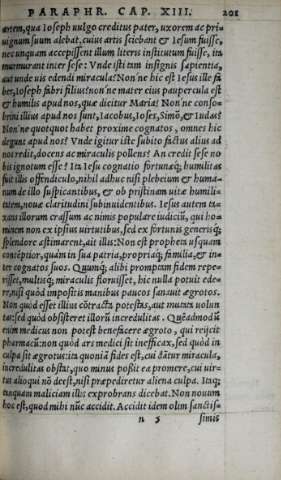 PARAPHR. CAP. XIII. 201
artem, qua Ioseph uulgo creditus pater, uxorem ac pri⸗
uignum suum alebat, cuius artis sciebant & Iesum fuisse,
nec unquam accepissent illum literis institutum fuisse, in
murmurant inter sese: Vnde isti tam insignis sapientia,
aut unde uis edendi miracula? Non ne hic est Iesus ille fa
ber, Ioseph fabri filius? non ne mater eius paupercula est
& humilis apud nos, quæ dicitur Maria? Non ne conso⸗
brini illius apud nos sunt, Iacobus, Ioses, Simō, & Iudas?
Non ne quotquot habet proxime cognatos, omnes hic
degunt apud nos? Vnde igitur iste subito factus alius ad
nos redit, docens ac miraculis pollens? An credit sese no
bis ignotum esse? Ita Iesu cognatio fortunæq́; humilitas
fuit illis offendiculo, nihil adhuc nisi plebeium & huma⸗
num de illo suspicantibus, & ob pristinam uitæ humili⸗
tatem, nouæ claritudini subinuidentibus. Iesus autem ta⸗
xans illorum crassum ac nimis populare iudiciū, qui ho⸗
minem non ex ipsius uirtutibus, sed ex fortunis generisq́;
splendore æstimarent, ait illis: Non est propheta usquam
contēptior, quàm in sua patria, propriaq́; familia, & in⸗
ter cognatos suos. Quumq́; alibi prompt am fidem repe⸗
risset, multisq́; miraculis floruisset, hic nulla potuit ede⸗
re, nisi quòd impositis manibus paucos sanauit ægrotos.
Non quòd esset illius cōtracta potestas, aut mutata uolun
tas: sed quòd obsisteret illorū incredulitas. Quēadmodū
enim medicus non potest benefacere ægroto, qui reijcit
pharmacū: non quòd ars medici sit inefficax, sed quòd in
culpa sit ægrotus: ita quoniā fides est, cui datur miracula,
incredulitas obstat, quo minus possit ea promere, cui uir⸗
tus alioqui nō deest, nisi præpediretur aliena culpa. Itaq́;
tanquam maliciam illis exprobrans dicebat. Non nouum
hoc est, quod mihi nūc accidit. Accidit idem olim sanctis⸗
n 5 simis